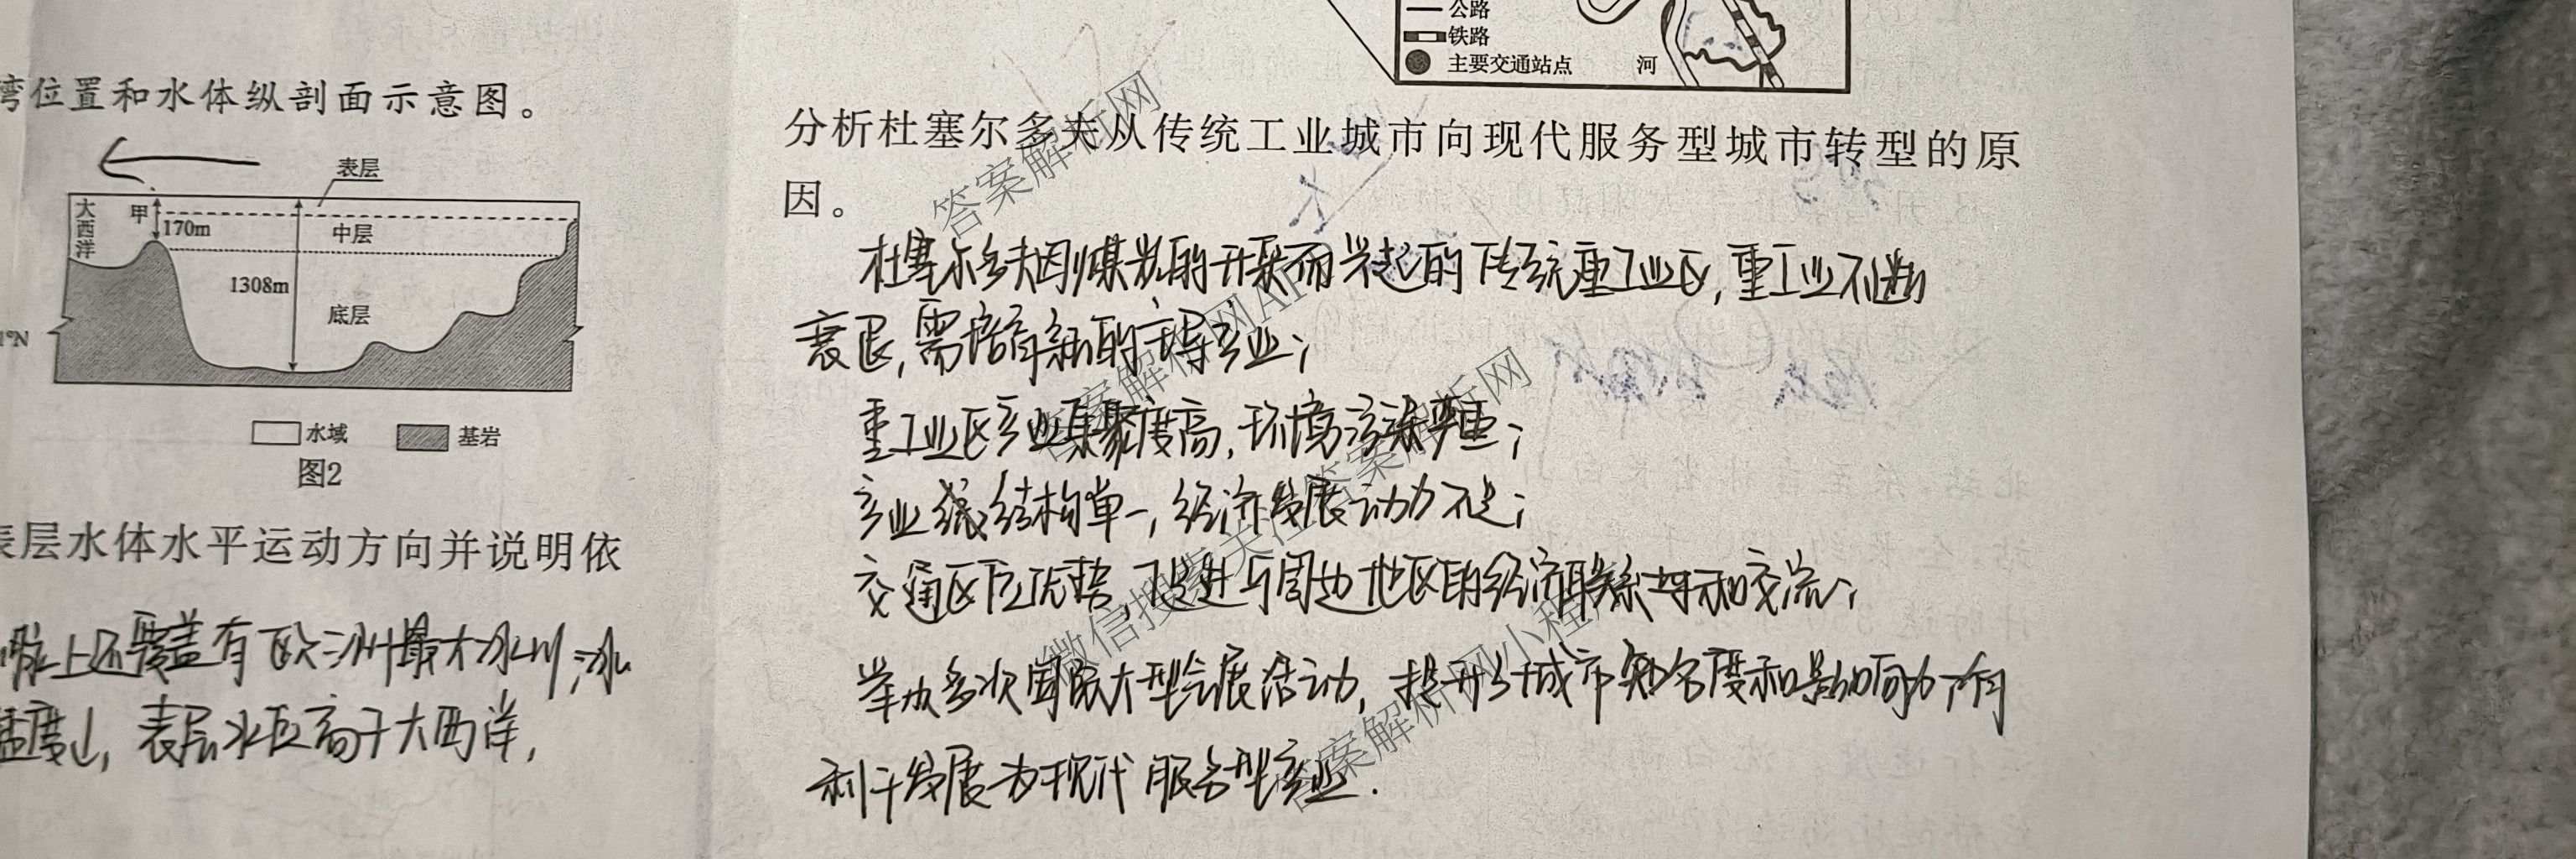 公路
铁路
主要交通站点
河
湾位置和水体纵剖面示意图。
表层
大西洋
甲
170m
中层
1308m
底层
1°N
水域
基岩
图2
表层水体水平运动方向并说明依
脉上还覆盖有欧洲最大冰川,冰
盐度小,表层水位高于大西洋,
分析杜塞尔多夫从传统工业城市向现代服务型城市转型的原
因。
杜塞尔多夫因煤炭的开采而兴起的传统重工业区,重工业不断
衰退,需培育新的主导产业;
重工业区产业集聚度高,环境污染严重;
产业结构单一,经济发展动力不足;
交通区位优势,促进与周边地区的经济联系与交流;
举办多次国际大型会展活动,提升城市知名度和影响力,有
利于发展为现代服务型产业.
答案解析网
答案解析网APP
微信搜索关注答案解析网
答案解析网小程序